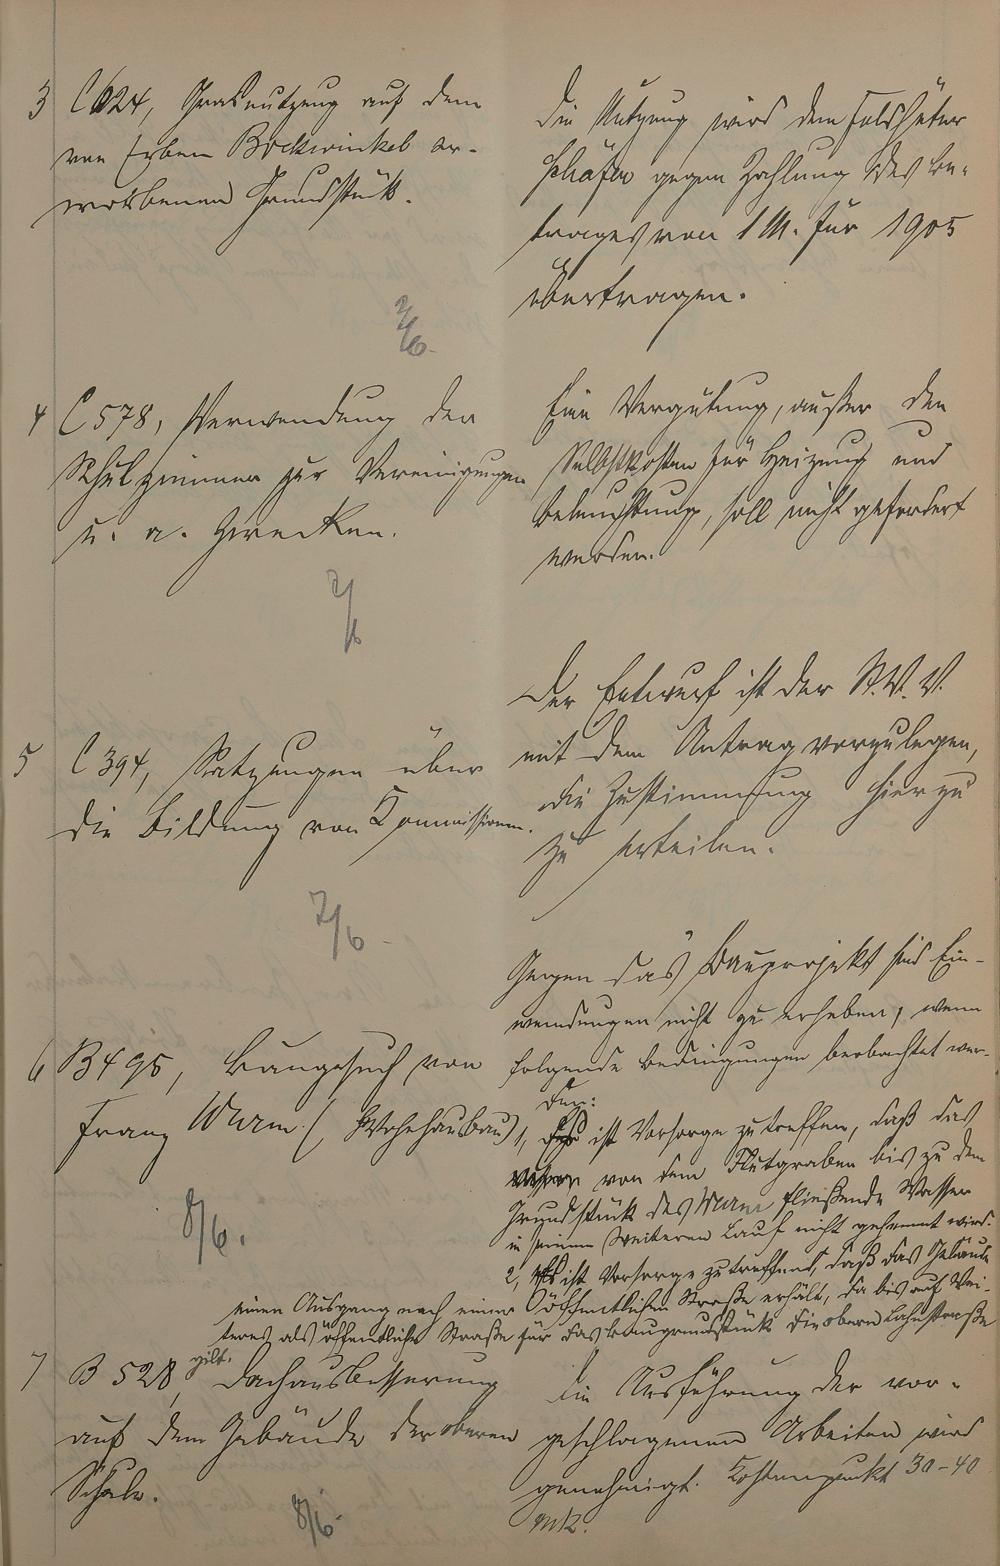 3 C 624, Grasnutzung auf dem
von Erben Bockwinkel er-
worbenen Grundstück.
Die Nutzung wird dem Feldhüter
Schäfer gegen Zahlung des Be-
trages von 1 M. für 1905
übertragen.
7/6.
4 C 578, Verwendung der
Schulzimmer zur Vereinigungen
u. a. Zwecken.
Eine Vergütung, außer den
Selbstkosten für Heizung und
Beleuchtung, soll nicht gefordert
werden.
7/6
5 C 394, Satzungen über
die Bildung von Kommissionen.
Der Entwurf ist der St. V. V.
mit dem Antrag vorzulegen,
die Zustimmung hierzu
zu erteilen.
7/6.
6 B 495, Baugesuch von
Franz Wurm (Wohnhausbau)
Gegen das Bauprojekt sind Ein-
wendungen nicht zu erheben, wenn
folgende Bedingungen beobachtet wer-
den:
1, Es ist Vorsorge zu treffen, daß das
von dem Flutgraben bis zu dem
Grundstück des Wurm fließende Wasser
in seinem weiteren Lauf nicht gehemmt wird.
2, Es ist Vorsorge zu treffen, daß das Gebäude
einen Ausgang nach einer öffentlichen Straße erhält, da bis auf Wei-
teres als öffentliche Straße für das Baugrundstück die obere Lahnstraße
gilt.
8/6.
7 B 528, Dachausbesserung
auf dem Gebäude der oberen
Schule.
Die Ausführung der vor-
geschlagenen Arbeiten wird
genehmigt. Kostenpunkt 30-40
Mk.
8/6.